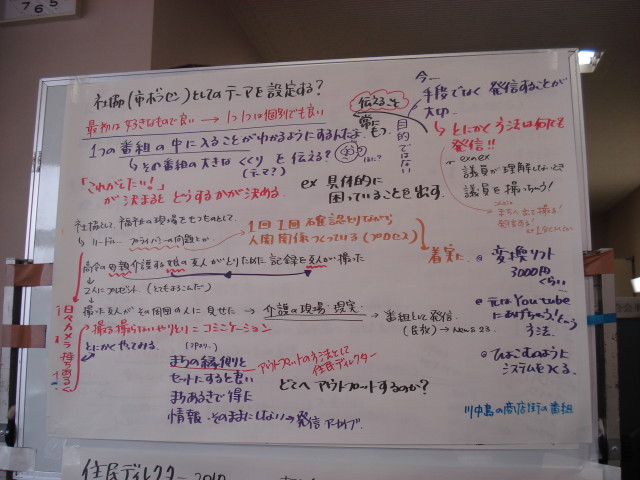 765
社協(市ボラセン)としてのテーマを設定する?
最初は好きなもので良い → 1つ1つは個別でも良い
1つの番組の中に入ることがわかるようにするんだよ
↳その番組の大きなくくりを伝える?
(テーマ?)
「これがしたい!」
が決まると どうするかが決める。
ex 具体的に
困っていることを出す。
伝えること
常にもつ
目的ではない
今一
手段でなく 発信することが
大切
↳とにかく方法は何でも
発信!!
議員が理解しないとき
議員を撮っちゃう!
社協として、福祉の現場をもつものとして
プライバシーの問題とか
→1回1回確認とりながら
人間関係つくっている(プロセス)
着実に
母親介護する娘の友人がとりためた記録を友人が撮った
↓2人にプレゼント(とてもよろこんだ)
撮った友人がその周囲の人に見せた → 介護の現場・現実 → 番組として発信
(民放)→News23
撮る撮らないやりとり=コミュニケーション
とにかくやってみる
日々カメラ持ちあるく
まちの縁側と
セットにすると良い
まちあるきで得た
情報 そのままにしない→発信 アーカイブ
アウトプットの方法として
住民ディレクター
どこへ アウトプットするのか?
変換ソフト
3000円
くらい
元はYoutube
にあげちゃう!という
方法
ひょこむのように
システムをつくる。
川中島の商店街の番組
住民ディレクター2010